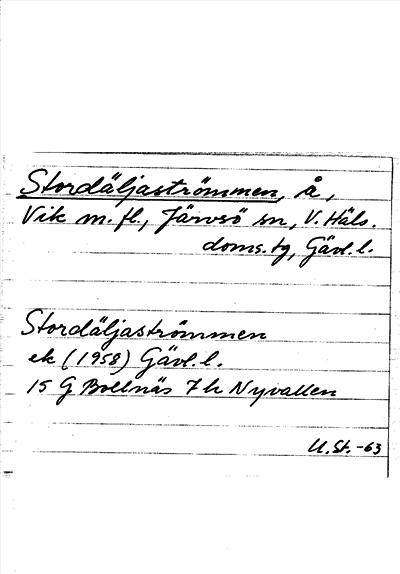 Stordäljaströmmen, å,
Vik m. fl., Järvsö sn, V. Häls.
doms. tg, Gävl. l.
Stordäljaströmmen
ek (1958) Gävl. l.
15 G Bollnäs 7 h Nyvallen
U. St. -63